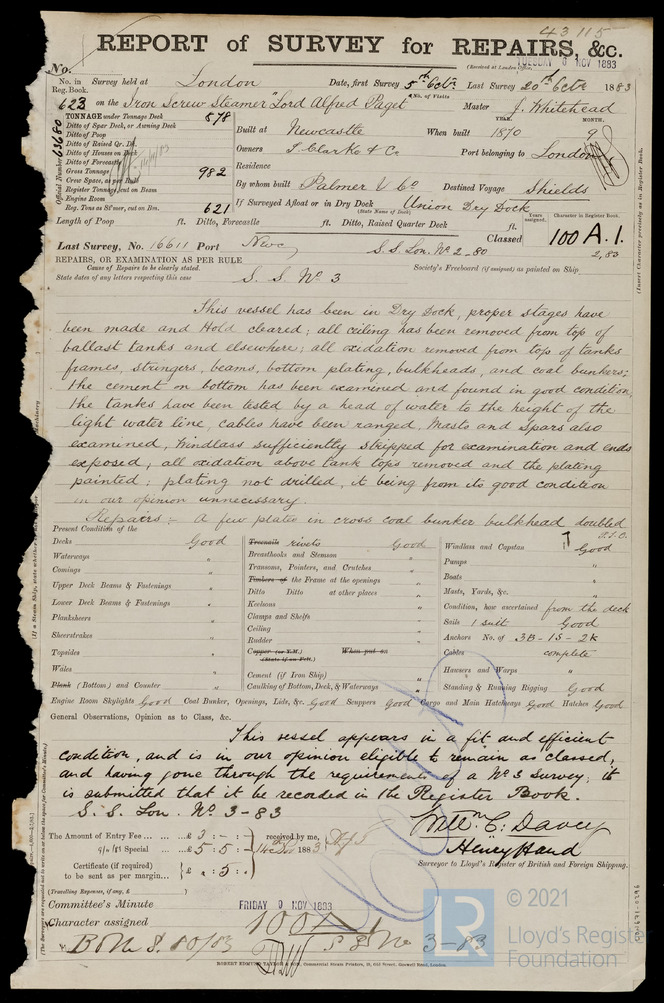 43115
REPORT of SURVEY for REPAIRS, &c.
(Received at London Office, TUESDAY 6 NOV 1883
No.
No. in Reg. Book. Survey held at London Date, first Survey 5th Octr Last Survey 20th Octr 1883
(No. of Visits
623 on the Iron Screw Steamer "Lord Alfred Paget" Master J. Whitehead
TONNAGE under Tonnage Deck 878
Ditto of Spar Deck, or Awning Deck
Ditto of Poop
Ditto of Raised Qr. Dk.
Ditto of Houses on Deck
Ditto of Forecastle
Gross Tonnage 982
Crew Space, as per Rule
Register Tonnage, cut on Beam
Engine Room
Reg. Tons as St'mer, cut on Bm. 621
Official Number 63680
Built at Newcastle When built YEAR. 1870 MONTH. 9
Owners J. Clarke & Co Port belonging to London
Residence
By whom built Palmer & Co Destined Voyage Shields
If Surveyed Afloat or in Dry Dock Union Dry Dock
(State Name of Dock)
Length of Poop ft. Ditto, Forecastle ft. Ditto, Raised Quarter Deck ft.
Years assigned. Character in Register Book.
Classed 100 A.1.
2,83
Last Survey, No. 16611 Port Newc S.S. Lon. No 2-80
REPAIRS, OR EXAMINATION AS PER RULE
Cause of Repairs to be clearly stated.
Society's Freeboard (if assigned) as painted on Ship
State dates of any letters respecting this case
S. S. No 3
This vessel has been in Dry Dock, proper stages have
been made and Hold cleared; all ceiling has been removed from top of
ballast tanks and elsewhere; all oxidation removed from top of tanks
frames, stringers, beams, bottom plating, bulkheads, and coal bunkers;
the cement on bottom has been examined and found in good condition,
the tanks have been tested by a head of water to the height of the
light water line, cables have been ranged, Masts and Spars also
examined, Windlass sufficiently stripped for examination and ends
exposed; all oxidation above tank tops removed and the plating
painted; plating not drilled, it being from its good condition
in our opinion unnecessary.
Repairs:- A few plates in cross coal bunker bulkhead doubled
P.T.O.
Present Condition of the
Decks Good
Waterways "
Comings "
Upper Deck Beams & Fastenings "
Lower Deck Beams & Fastenings "
Planksheers "
Sheerstrakes "
Topsides "
Wales "
Plank (Bottom) and Counter "
Treenails rivets Good
Breasthooks and Stemson "
Transoms, Pointers, and Crutches "
Timbers of the Frame at the openings "
Ditto Ditto at other places "
Keelsons "
Clamps and Shelfs "
Ceiling "
Rudder "
Copper (or Y.M.) When put on
(State if on Felt.)
Cement (if Iron Ship) "
Caulking of Bottom, Deck, & Waterways "
Windlass and Capstan Good
Pumps "
Boats "
Masts, Yards, &c. "
Condition, how ascertained from the deck
Sails 1 suit Good
Anchors No. of 3B-1S-2K
Cables complete
Hawsers and Warps "
Standing & Running Rigging Good
Engine Room Skylights Good Coal Bunker, Openings, Lids, &c. Good Scuppers Good Cargo and Main Hatchways Good Hatches Good
General Observations, Opinion as to Class, &c.
This vessel appears in a fit and efficient
condition, and is in our opinion eligible to remain as classed,
and having gone through the requirements of a No 3 survey, it
is submitted that it be recorded in the Register Book.
S. S. Lon. No 3-83
The Amount of Entry Fee £ 3 : - : -
Special £ 5 : 5 : -
received by me,
1883
Certificate (if required)
to be sent as per margin £ " . 5 :
(Travelling Expenses, if any, £ )
Wm C. Davey
Henry Hand
Surveyor to Lloyd's Register of British and Foreign Shipping.
Committee's Minute FRIDAY 9 NOV 1883
Character assigned 100 A 1
S S No 3-83
ROBERT EDMUND TAYLOR & SON, Commercial Steam Printers, 19, Old Street, Goswell Road, London.
(Insert Character precisely as in Register Book.
LR
© 2021
Lloyd's Register
Foundation